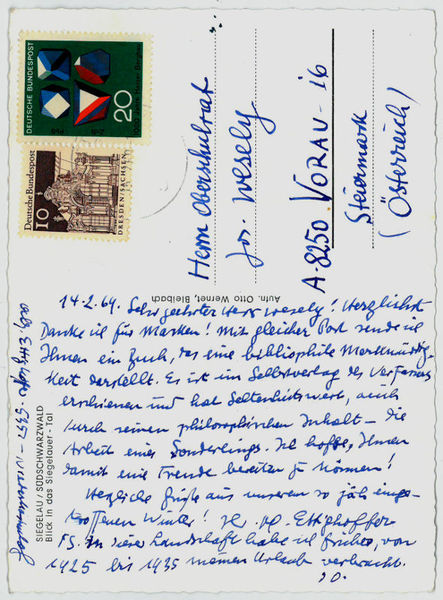 DEUTSCHE BUNDESPOST
20
PbS
ZnS
1000 Jahre Harzer Bergbau
Deutsche Bundespost
10
DRESDEN/SACHSEN
Herrn Oberschulrat
Jos. Wesely
A-8250 VORAU - 16
Steiermark
(Österreich)
Aufn. Otto Werner, Bleibach
SIEGELAU / SÜDSCHWARZWALD
Blick in das Siegelauer-Tal
14.2.69. Sehr geehrter Herr Wesely! Herzlichst
Danke ich für Marken! Mit gleicher Post sende ich
Ihnen ein Buch, das eine bibliophile Merkwürdig-
keit darstellt. Es ist im Selbstverlag des Verfassers
erschienen und hat Seltenheitswert, auch
durch seinen philosophischen Inhalt - die
Arbeit eines Sonderlings. Ich hoffe, Ihnen
damit eine Freude bereiten zu können!
Herzliche Grüße aus unserem so jäh einge-
troffenen Winter! Ihr Ettighoffer
PS. In diese Landschaft habe ich früher, von
1925 bis 1935 meinen Urlaub verbracht.
D.O.
Ettighoffer 5357